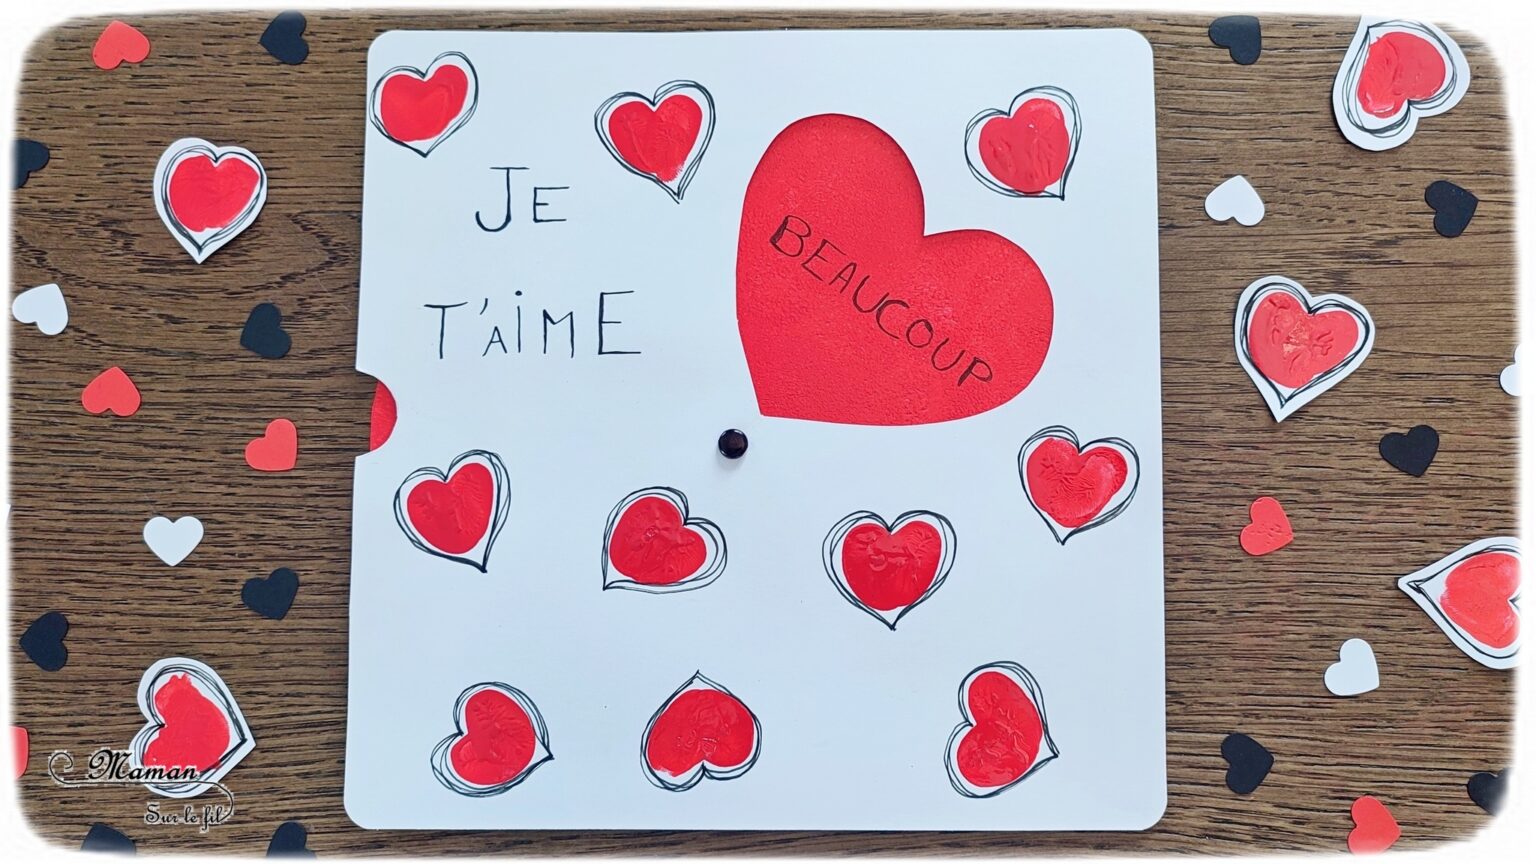 JE
T'AiME
BEAUCOUP
Maman
Sur le fil